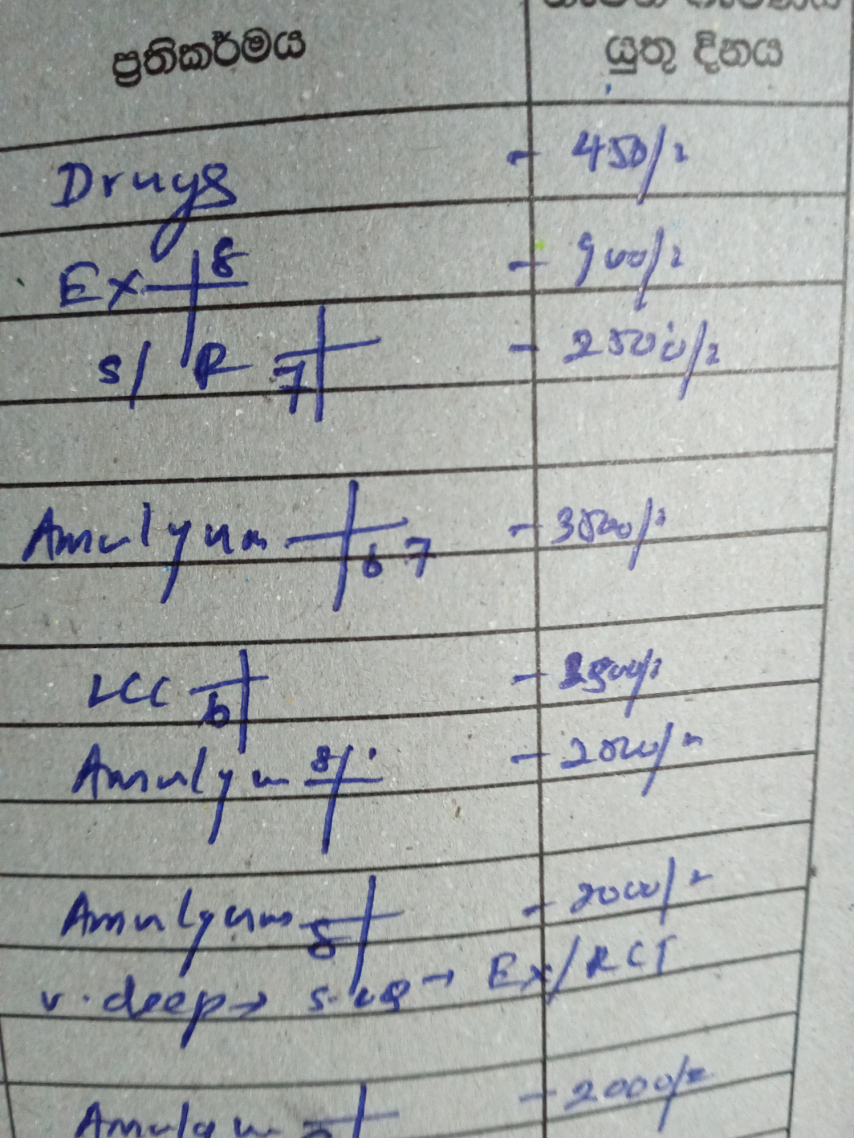 ප්‍රතිකර්මය
යුතු දිනය
Drugs - 450/=
Ex 8 - 900/=
S/R 7 - 2500/=
Amulgum 6 7 - 3500/=
LCC 6 - 2500/=
Amulgum 8 - 2000/=
Amulgum 8 - 2000/=
v. deep → → Ex/RCT
Amulgum - 2000/=